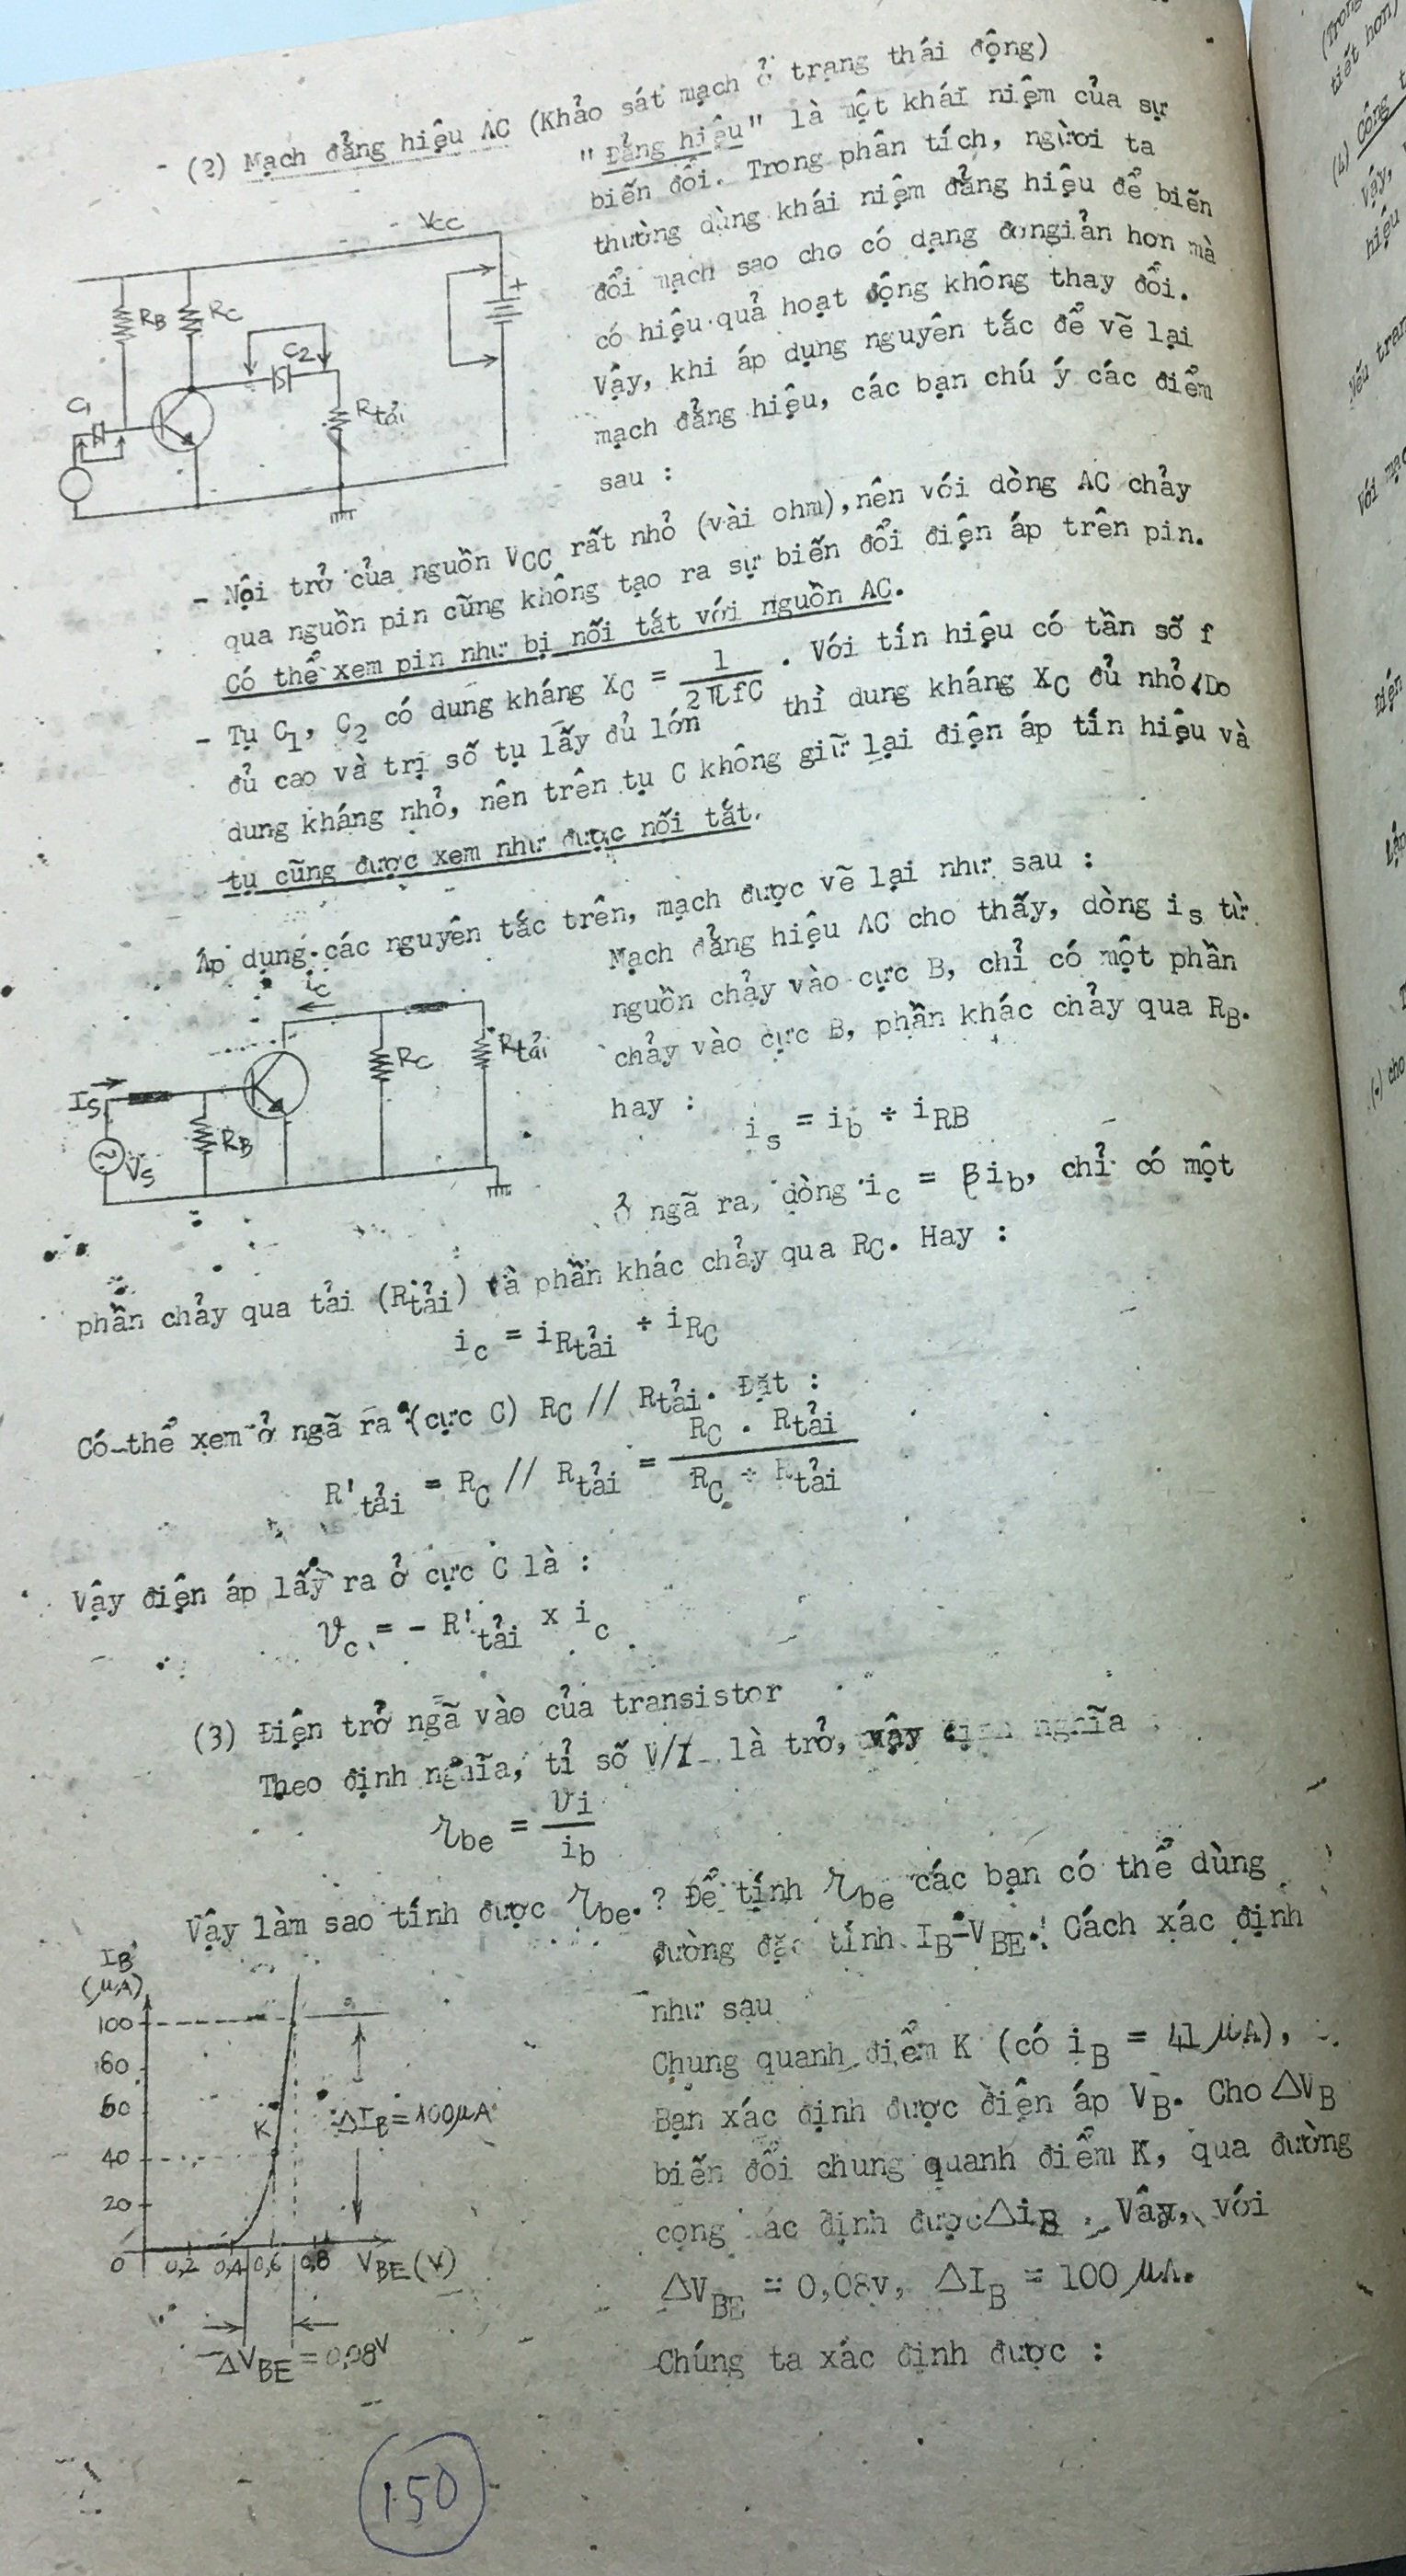 - (2) Mạch đẳng hiệu AC (Khảo sát mạch ở trạng thái động)
"Đẳng hiệu" là một khái niệm của sự
biến đổi. Trong phân tích, người ta
thường dùng khái niệm đẳng hiệu để biến
đổi mạch sao cho có dạng đơngiản hơn mà
có hiệu quả hoạt động không thay đổi.
Vậy, khi áp dụng nguyên tắc để vẽ lại
mạch đẳng hiệu, các bạn chú ý các điểm
sau :
VCC
RB
RC
C2
+
C1
Rtải
- Nội trở của nguồn VCC rất nhỏ (vài ohm), nên với dòng AC chảy
qua nguồn pin cũng không tạo ra sự biến đổi điện áp trên pin.
Có thể xem pin như bị nối tắt với nguồn AC.
- Tụ C1, C2 có dung kháng XC = 1/2πfC . Với tín hiệu có tần số f
đủ cao và trị số tụ lấy đủ lớn thì dung kháng XC đủ nhỏ. Do
dung kháng nhỏ, nên trên tụ C không giữ lại điện áp tín hiệu và
tụ cũng được xem như được nối tắt.
Áp dụng các nguyên tắc trên, mạch được vẽ lại như sau :
Mạch đẳng hiệu AC cho thấy, dòng is từ
nguồn chảy vào cực B, chỉ có một phần
chảy vào cực B, phần khác chảy qua RB.
hay :
is = ib ÷ iRB
ic
IS
VS
RB
RC
Rtải
Ở ngã ra, dòng ic = βib, chỉ có một
phần chảy qua tải (Rtải) và phần khác chảy qua RC. Hay :
ic = iRtải ÷ iRC
Có thể xem ở ngã ra (cực C) RC // Rtải. Đặt :
R'tải = RC // Rtải = RC . Rtải / RC ÷ Rtải
Vậy điện áp lấy ra ở cực C là :
vc = - R'tải x ic
(3) Điện trở ngã vào của transistor
Theo định nghĩa, tỉ số V/I là trở, vậy định nghĩa
rbe = vi/ib
Vậy làm sao tính được rbe ? Để tính rbe các bạn có thể dùng
đường đặc tính IB-VBE. Cách xác định
như sau
Chung quanh điểm K (có iB = 41 μA),
Bạn xác định được điện áp VB. Cho ΔVB
biến đổi chung quanh điểm K, qua đường
cong xác định được ΔiB . Vậy, với
ΔVBE = 0,08v, ΔIB = 100 μA.
Chúng ta xác định được :
IB
(μA)
100
80
60
40
20
0
0,2
0,4
0,6
0,8
VBE (V)
K
ΔIB = 100μA
ΔVBE = 0,08V
150